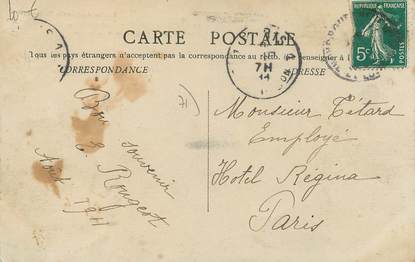 CARTE POSTALE
Tous les pays étrangers n'acceptent pas la correspondance au recto. (Se renseigner à la
CORRESPONDANCE
ADRESSE
RÉPUBLIQUE FRANÇAISE
5c
7H
11
71
Bon souvenir
E Rougeot
Août 1911
Monsieur Tétard
Employé
Hotel Regina
Paris